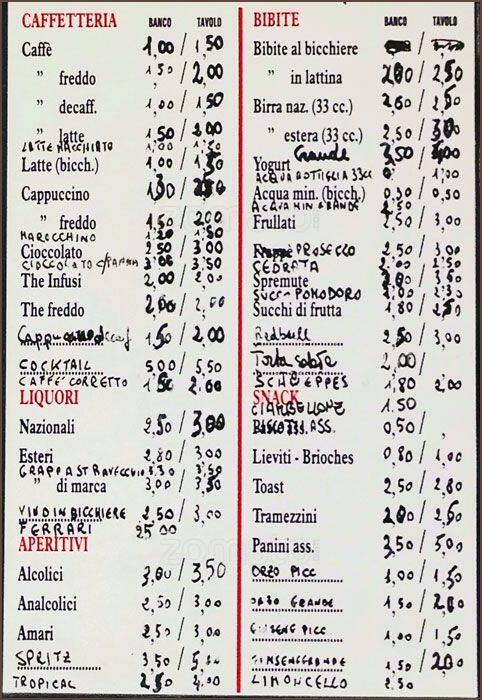 CAFFETTERIA BANCO TAVOLO
Caffè 1,00 / 1,50
" freddo 1,50 / 2,00
" decaff. 1,00 / 1,50
" latte 1,50 / 2,00
LATTE MACCHIATO 1,00 1,50
Latte (bicch.) 1,00 / 1,50
Cappuccino 1,30 /
" freddo 1,50 / 2,00
MAROCCHINO 1,20 1,50
Cioccolato 2,50 / 3,00
CIOCCOLATO C/PANNA 3,00 3,50
The Infusi 2,00 / 2,00
The freddo 2,00 / 2,00
1,50 / 2,00
COCKTAIL 5,00 / 5,50
CAFFE' CORRETTO 1,50 2,00
LIQUORI
Nazionali 2,50 / 3,00
Esteri 2,80 / 3,00
GRAPPA STRAVECCHIO 3,30 3,50
" di marca 3,00 / 3,50
VINO IN BICCHIERE 2,50 / 3,00
FERRARI 25,00
APERITIVI
Alcolici 3,00 / 3,50
Analcolici 2,50 / 3,00
Amari 2,50 / 3,00
SPRITZ 3,50 / 5,00
TROPICAL 2,50 / 4,00
BIBITE BANCO TAVOLO
Bibite al bicchiere
" in lattina 2,00 / 2,50
Birra naz. (33 cc.) 2,00 / 2,50
" estera (33 cc.) 2,50 / 3,00
Yogurt Grande 3,50
ACQUA BOTTIGLIA 33cc 1,00
Acqua min. (bicch.) 0,30 / 0,50
ACQUA MIN GRANDE
Frullati 2,50 / 3,00
PROSECCO 2,50 / 3,00
CEDRATA 2,00
Spremute
SUCC. POMODORO 2,00 2,30
Succhi di frutta 1,80 / 2,50
Redbull 2,50 / 3,00
Torta 2,00 /
SCHWEPPES 1,80 2,00
SNACK
CIAMBELLONE 1,50
BISCOTTI ASS. 0,50 /
Lieviti - Brioches 0,80 / 1,00
Toast 2,50 / 2,80
Tramezzini 2,00 / 2,50
Panini ass. 3,50 / 5,00
ORZO PICC 1,00 / 1,50
ORZO GRANDE 1,50 / 2,00
GINSENG PICC 1,00 / 1,50
GINSENG GRANDE 1,50 / 2,00
LIMONCELLO 2,50